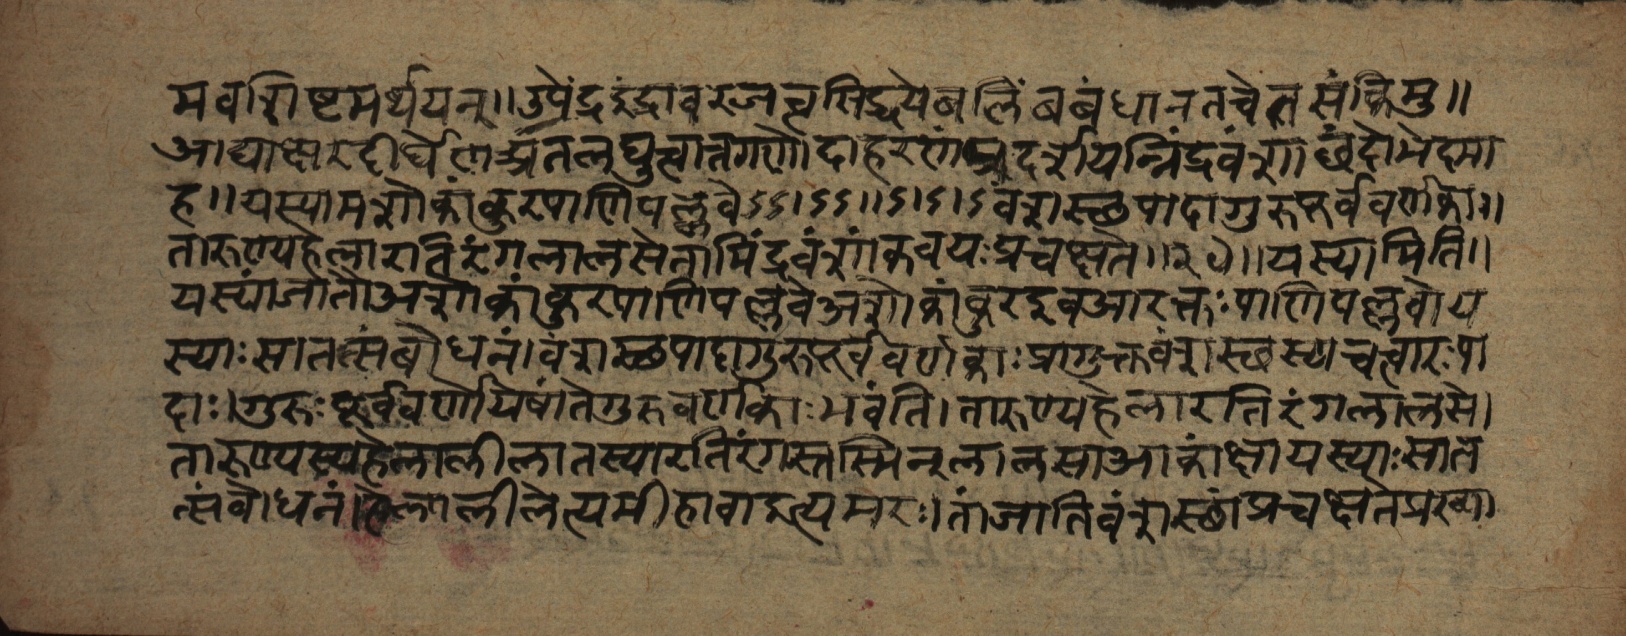 मवशिष्टमर्थयन्॥उपेंद्रइंद्रावरजत्वसिद्धयेबलिंबबंधानतचेतसंकिमु॥
आद्याक्षरदीर्घेणअंतलघुत्वातगणोदाहरणंप्रदर्शयन्निंद्रवंशाछंदोभेदमा
ह॥यस्यामशोकांकुरपाणिपल्लवेऽऽ।ऽऽ॥ऽ।ऽ।ऽवंशस्छपादागुरुपूर्ववर्णकाः।
तारुण्यहेलारतिरंगलालसेतामिंद्रवंशांकवयःप्रचक्षते॥२७॥यस्यामिति॥
यस्यांजातौअशोकांकुरपाणिपल्लवेअशोकांकुरइवआरक्तःपाणिपल्लवोय
स्याःसातत्संबोधनं।वंशस्छपादागुरुपूर्ववर्णकाःप्रागुक्तवंशस्छस्यचत्वारःपा
दाः।गुरुःपूर्ववर्णोयेषांतेगुरुवर्णकाःभवंति।तारुण्यहेलारतिरंगलालसे।
तारुण्यस्यहेलालीलातस्यारतिरंगस्तस्मिन्लालसाआकांक्षायस्याःसात
त्संबोधनं।हेलालीलेत्यमीहावाइत्यमरः।तांजातिवंशस्छांप्रचक्षतेप्रख्या